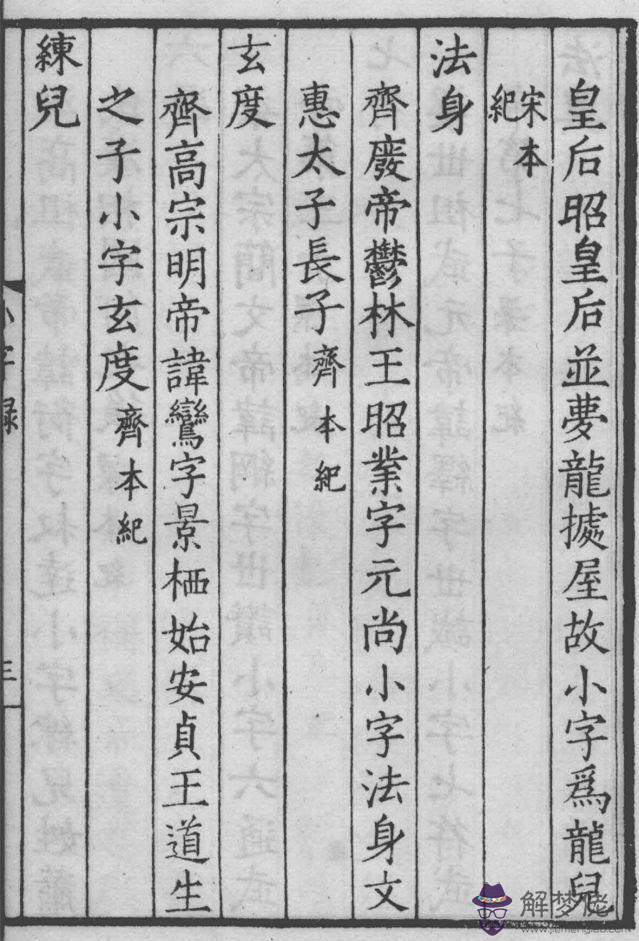 皇后昭皇后並夢龍據屋故小字爲龍兒
宋本紀
法身
齊廢帝鬱林王昭業字元尚小字法身文
惠太子長子齊本紀
玄度
齊高宗明帝諱鸞字景栖始安貞王道生
之子小字玄度齊本紀
練兒
小字録
三
解梦佬